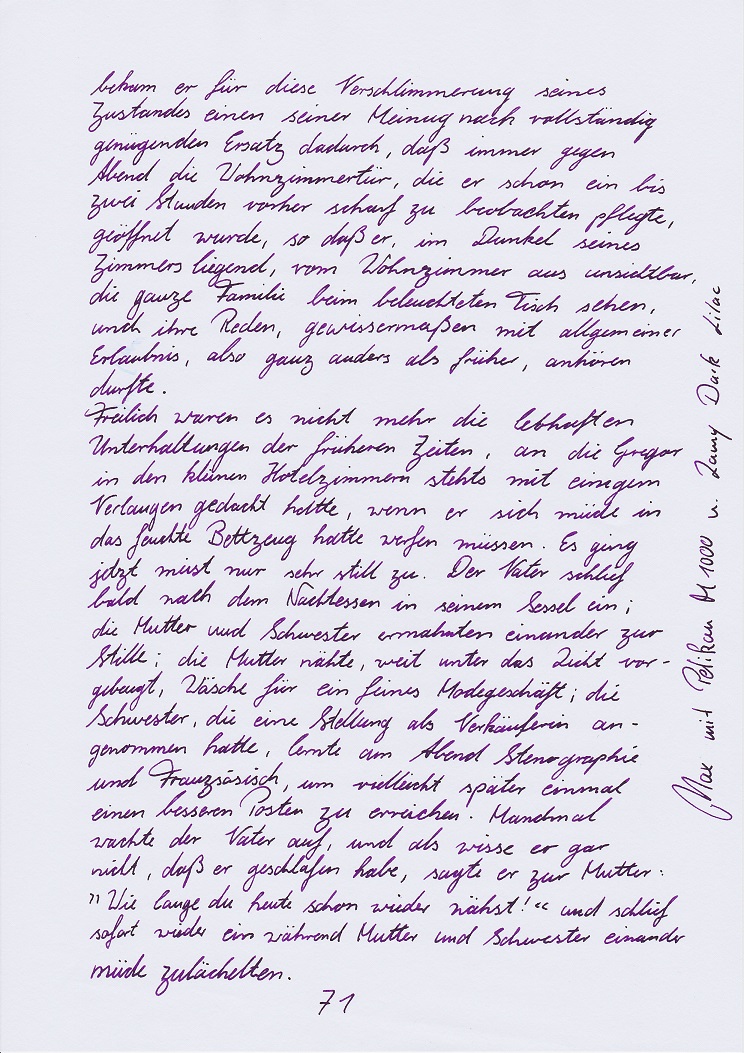 bekam er für diese Verschlimmerung seines
Zustandes einen seiner Meinug nach vollständig
genügenden Ersatz dadurch, daß immer gegen
Abend die Wohnzimmertür, die er schon ein bis
zwei Stunden vorher scharf zu beobachten pflegte,
geöffnet wurde, so daß er, im Dunkel seines
Zimmers liegend, vom Wohnzimmer aus unsichtbar,
die ganze Familie beim beleuchteten Tisch sehen,
und ihre Reden, gewissermaßen mit allgemeiner
Erlaubnis, also ganz anders als früher, anhören
durfte.
Freilich waren es nicht mehr die lebhaften
Unterhaltungen der früheren Zeiten, an die Gregor
in den kleinen Hotelzimmern stehts mit einigem
Verlangen gedacht hatte, wenn er sich müde in
das feuchte Bettzeug hatte werfen müssen. Es ging
jetzt meist nur sehr still zu. Der Vater schlief
bald nach dem Nachtessen in seinem Sessel ein;
die Mutter und Schwester ermahnten einander zur
Stille; die Mutter nähte, weit unter das Licht vor-
gebeugt, Wäsche für ein feines Modegeschäft; die
Schwester, die eine Stellung als Verkäuferin an-
genommen hatte, lernte am Abend Stenographie
und Französisch, um vielleicht später einmal
einen besseren Posten zu erreichen. Manchmal
wachte der Vater auf, und als wisse er gar
nicht, daß er geschlafen habe, sagte er zur Mutter:
"Wie lange du heute schon wieder nähst!" und schlief
sofort wieder ein während Mutter und Schwester einander
müde zulächelten.
71
Max mit Pelikan M 1000 u. Lamy Dark Lilac